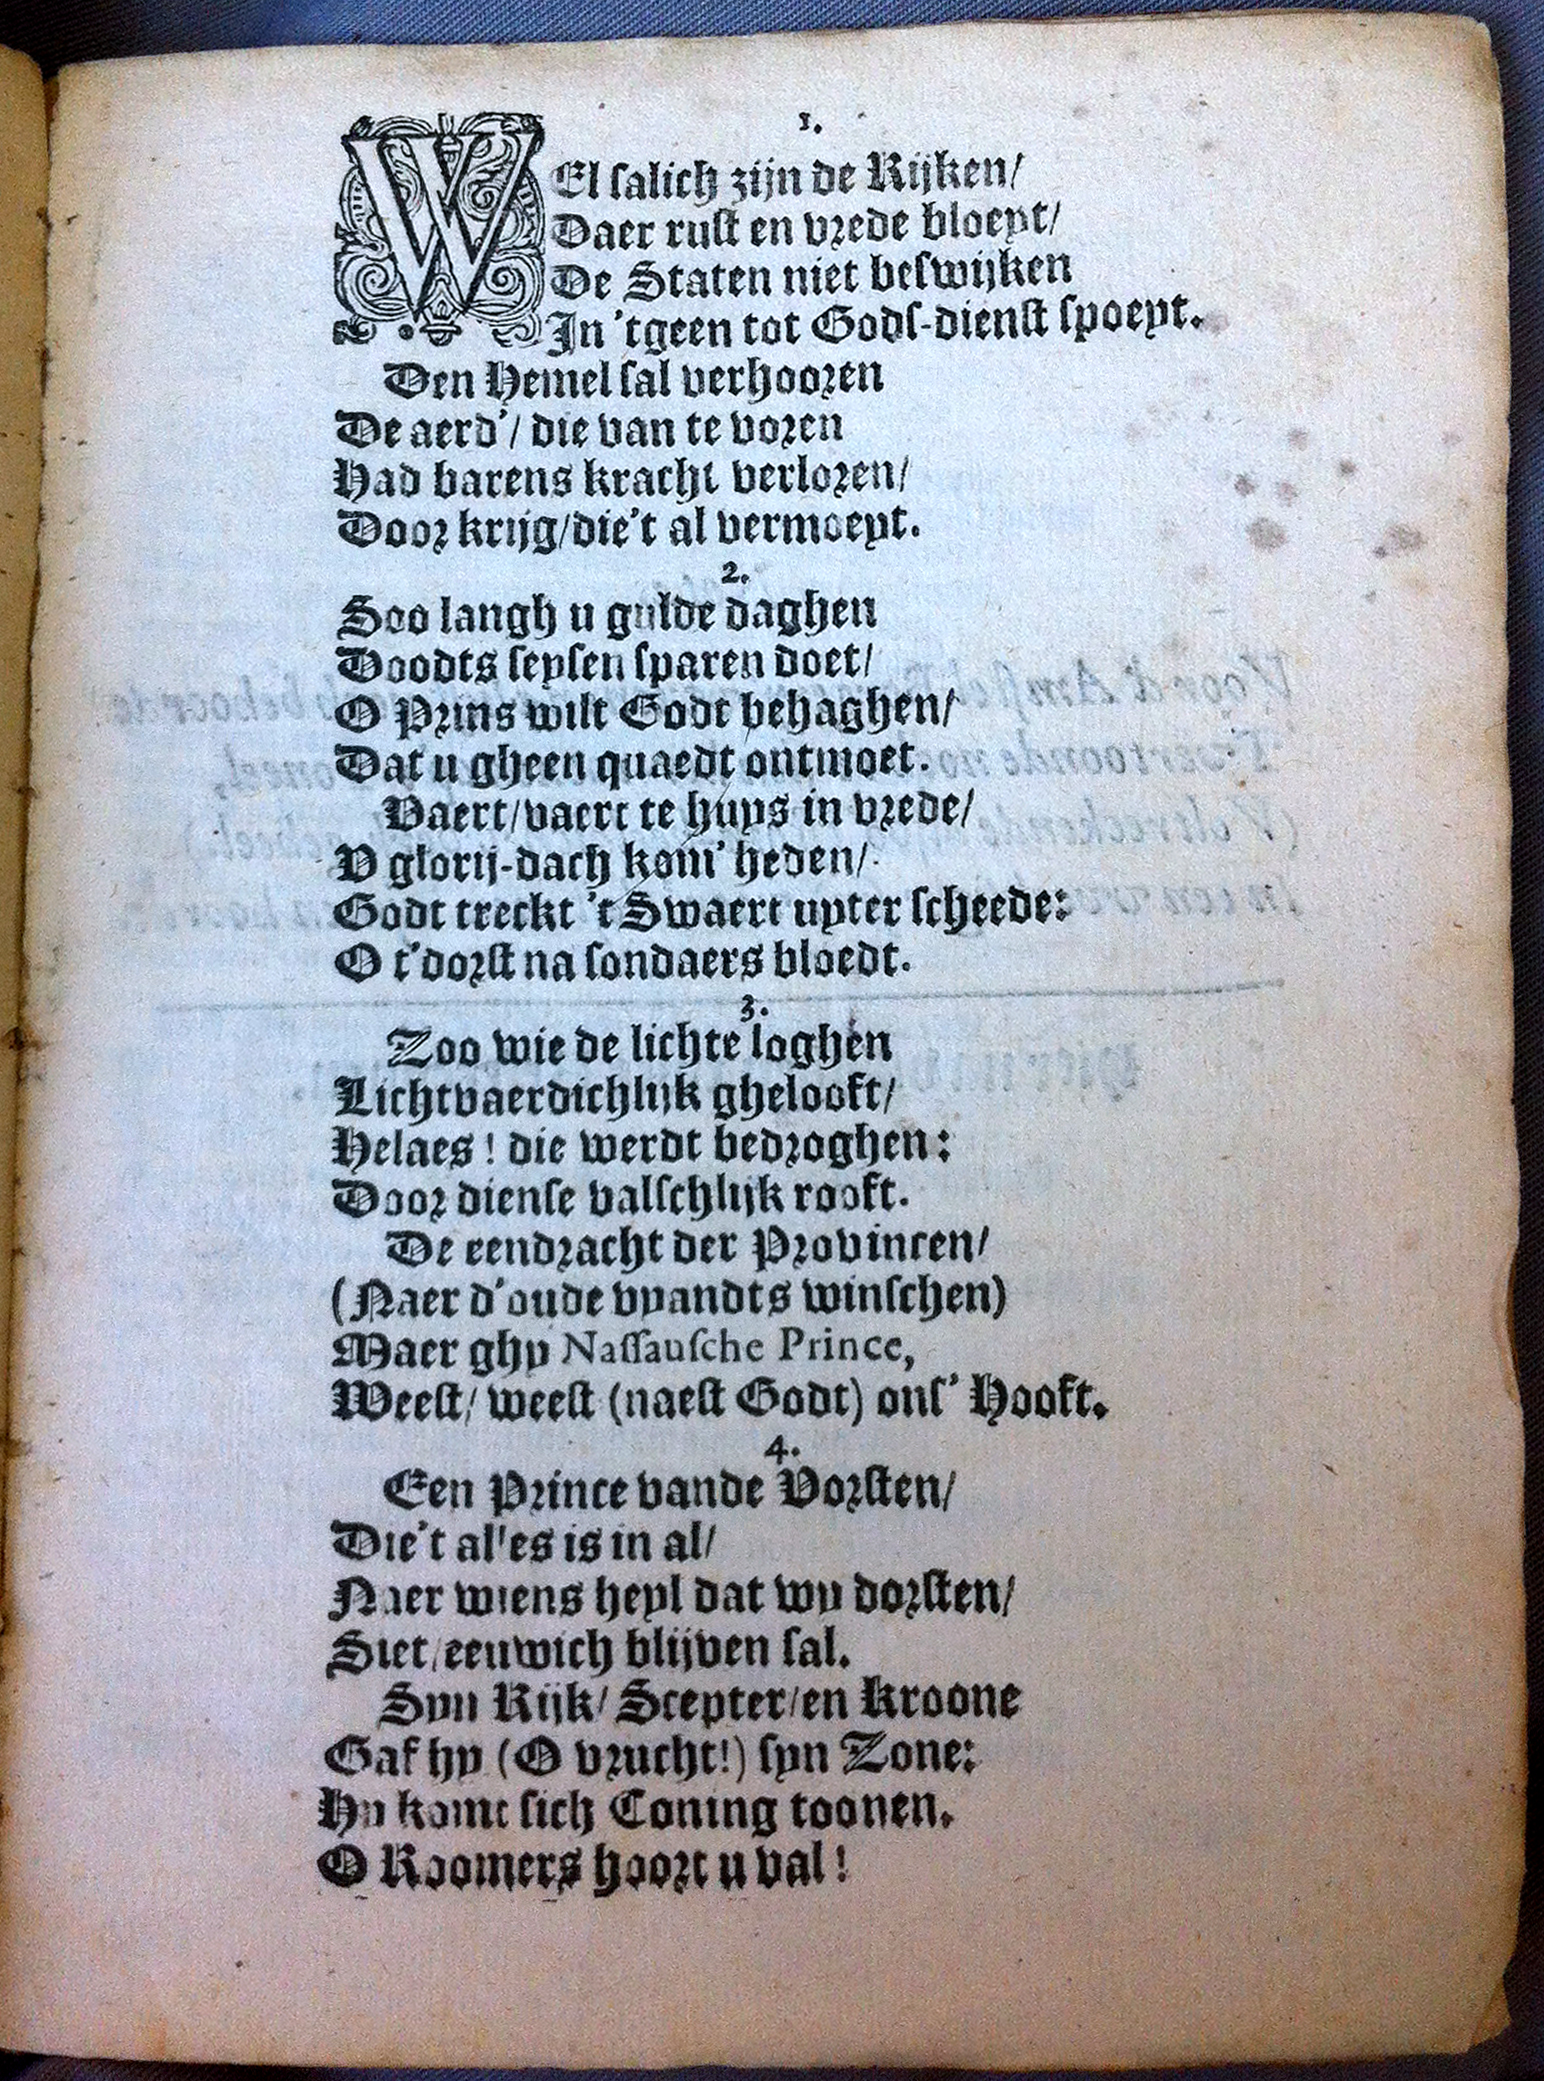 1.
WEl salich zijn de Rijken/
Daer rust en vrede bloeyt/
De Staten niet beswijken
In 'tgeen tot Gods-dienst spoeyt.
Den Hemel sal verhooren
De aerd'/ die van te voren
Had barens kracht verloren/
Door krijg/die't al vermoeyt.
2.
Soo langh u gulde daghen
Doodts seysen sparen doet/
O Prins wilt Godt behaghen/
Dat u gheen quaedt ontmoet.
Vaert/vaert te huys in vrede/
V glorij-dach kom' heden/
Godt treckt 't Swaert uyter scheede:
O t'dorst na sondaers bloedt.
3.
Zoo wie de lichte loghen
Lichtvaerdichlijk ghelooft/
Helaes! die werdt bedroghen:
Door diense valschlijk rooft.
De eendracht der Provincen/
(Naer d'oude vyandts winschen)
Maer ghy Nassausche Prince,
Weest/ weest (naest Godt) ons' Hooft.
4.
Een Prince vande Vorsten/
Die't alles is in al/
Naer wiens heyl dat wy dorsten/
Siet/eeuwich blijven sal.
Syn Rijk/ Scepter/en Kroone
Gaf hy (O vrucht!) syn Zone:
Hy komt sich Coning toonen.
O Roomers hoort u val!